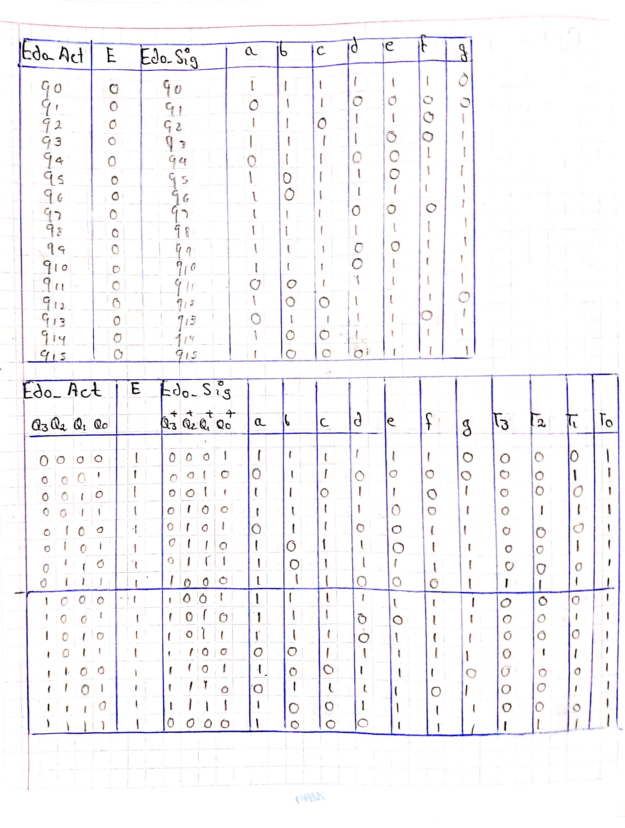 Edo_Act E Edo_Sig a b c d e f g
q0 0 q0 1 1 1 1 1 1 0
q1 0 q1 0 1 1 0 0 0 0
q2 0 q2 1 1 0 1 1 0 1
q3 0 q3 1 1 1 1 0 0 1
q4 0 q4 0 1 1 0 0 1 1
q5 0 q5 1 0 1 1 0 1 1
q6 0 q6 1 0 1 1 1 1 1
q7 0 q7 1 1 1 0 0 0 1
q8 0 q8 1 1 1 1 1 1 1
q9 0 q9 1 1 1 0 0 1 1
q10 0 q10 1 1 1 0 1 1 1
q11 0 q11 0 0 1 1 1 1 1
q12 0 q12 1 0 0 1 1 1 0
q13 0 q13 0 1 1 1 1 0 1
q14 0 q14 1 0 0 1 1 1 1
q15 0 q15 1 0 0 0 1 1 1
Edo_ Act E Edo_ Sig
Q3 Q2 Q1 Q0 Q3+ Q2+ Q1+ Q0+ a b c d e f g T3 T2 T1 T0
0 0 0 0 1 0 0 0 1 1 1 1 1 1 1 0 0 0 0 1
0 0 0 1 1 0 0 1 0 0 1 1 0 0 0 0 0 0 1 1
0 0 1 0 1 0 0 1 1 1 1 0 1 1 0 1 0 0 0 1
0 0 1 1 1 0 1 0 0 1 1 1 1 0 0 1 0 1 1 1
0 1 0 0 1 0 1 0 1 0 1 1 0 0 1 1 0 0 0 1
0 1 0 1 1 0 1 1 0 1 0 1 1 0 1 1 0 0 1 1
0 1 1 0 1 0 1 1 1 1 0 1 1 1 1 1 0 0 0 1
0 1 1 1 1 1 0 0 0 1 1 1 0 0 0 1 1 1 1 1
1 0 0 0 1 1 0 0 1 1 1 1 1 1 1 1 0 0 0 1
1 0 0 1 1 1 0 1 0 1 1 1 0 0 1 1 0 0 1 1
1 0 1 0 1 1 0 1 1 1 1 1 0 1 1 1 0 0 0 1
1 0 1 1 1 1 1 0 0 0 0 1 1 1 1 1 0 1 1 1
1 1 0 0 1 1 1 0 1 1 0 0 1 1 1 0 0 0 0 1
1 1 0 1 1 1 1 1 0 0 1 1 1 1 0 1 0 0 1 1
1 1 1 0 1 1 1 1 1 1 0 0 1 1 1 1 0 0 0 1
1 1 1 1 1 0 0 0 0 1 0 0 0 1 1 1 1 1 1 1